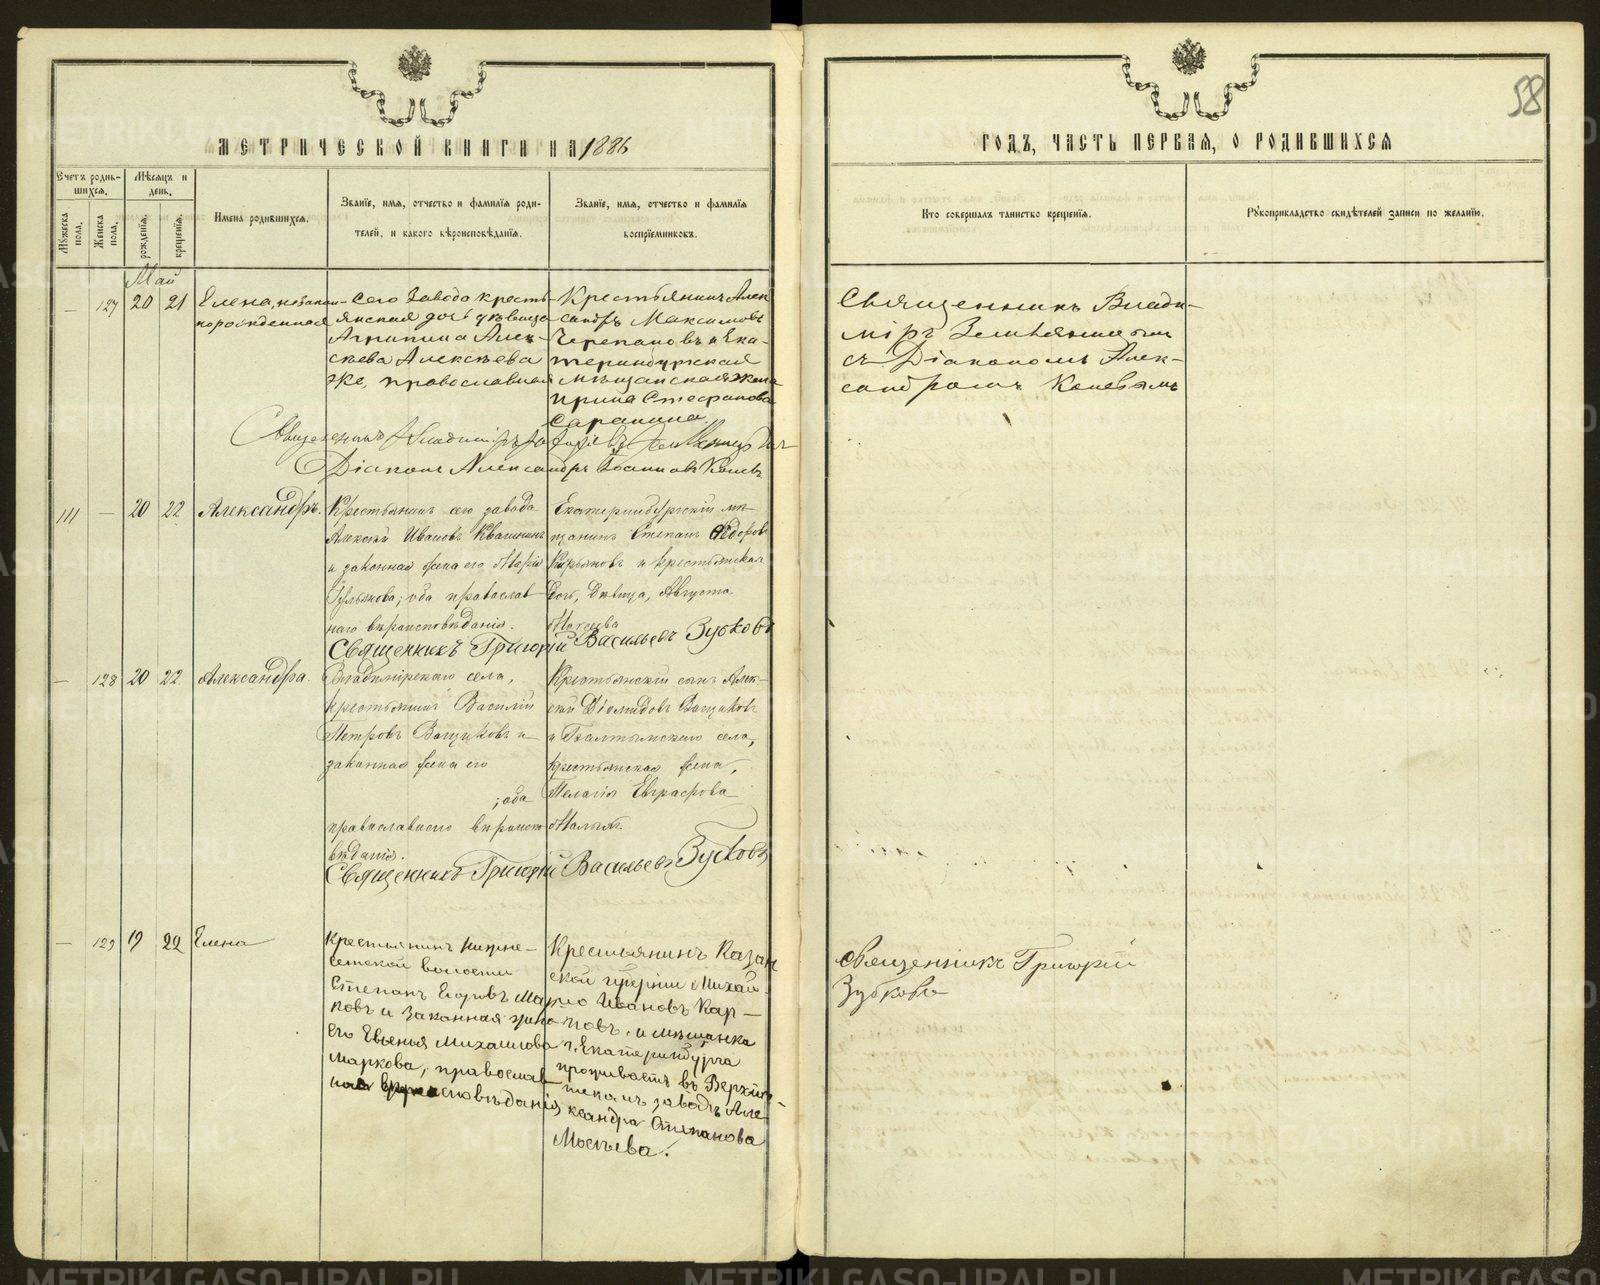 58
МЕТРИЧЕСКОЙ КНИГИ НА 1886
ГОДЪ, ЧАСТЬ ПЕРВАЯ, О РОДИВШИХСЯ
Счетъ родившихся.
Мужеска пола.
Женска пола.
Мѣсяцъ и день.
рожденія.
крещенія.
Имена родившихся.
Званіе, имя, отчество и фамилія роди-
телей, и какого вѣроисповѣданія.
Званіе, имя, отчество и фамилія
воспріемниковъ.
Кто совершалъ таинство крещенія.
Рукоприкладство свидѣтелей записи по желанію.
Май
— 127 20 21
Елена, незакон-
норожденная
Сего завода кресть-
янская дочь дѣвица
Агрипина Алек-
сѣева Алексѣева
же, православная
Крестьянинъ Алек
сандръ Максимовъ
Черепановъ и Ека-
теринбургская
мѣщанская жена
Ирина Стефанова
Сарапина.
Священникъ Влади-
міръ
съ Діакономъ Алек-
сандромъ Коневымъ
Священникъ Владиміръ
Діаконъ Александръ Іоанновъ Коневъ
111 — 20 22
Александръ.
Крестьянинъ сего завода
Алексѣй Ивановъ Квашнинъ
и законная жена его Марія
православ-
наго вѣроисповѣданія.
Екатеринбургскій мѣ-
щанинъ Степанъ Ѳедоровъ
Кирьяковъ и крестьянская
дочь, дѣвица, Августа
Священникъ Григорій Васильевъ Зубковъ
— 128 20 22
Александра.
Владимірскаго села,
крестьянинъ Василій
Петровъ Ващиковъ и
законная жена его
; оба
православнаго вѣроиспо-
вѣданія.
Крестьянскій сынъ Алек-
сѣй Діомидовъ Ващиковъ
и Балтымскаго села,
крестьянская жена,
Пелагія Евграфова
Малыхъ.
Священникъ Григорій Васильевъ Зубковъ
— 129 19 22
Елена
Крестьянинъ Нижне-
сетской волости
Степанъ Егоровъ Мар-
ковъ и законная жена
его Евгенья Михаилова
Маркова, православ-
наго вѣроисповѣданія
Крестьянинъ Казан
ской губерніи Михай-
ло Ивановъ Кар-
повъ, и мѣщанка
г. Екатеринбурга
проживаетъ въ Верхъис-
сткомъ заводѣ Але-
ксандра Степанова
Мосѣева.
Священникъ Григорій
Зубковъ